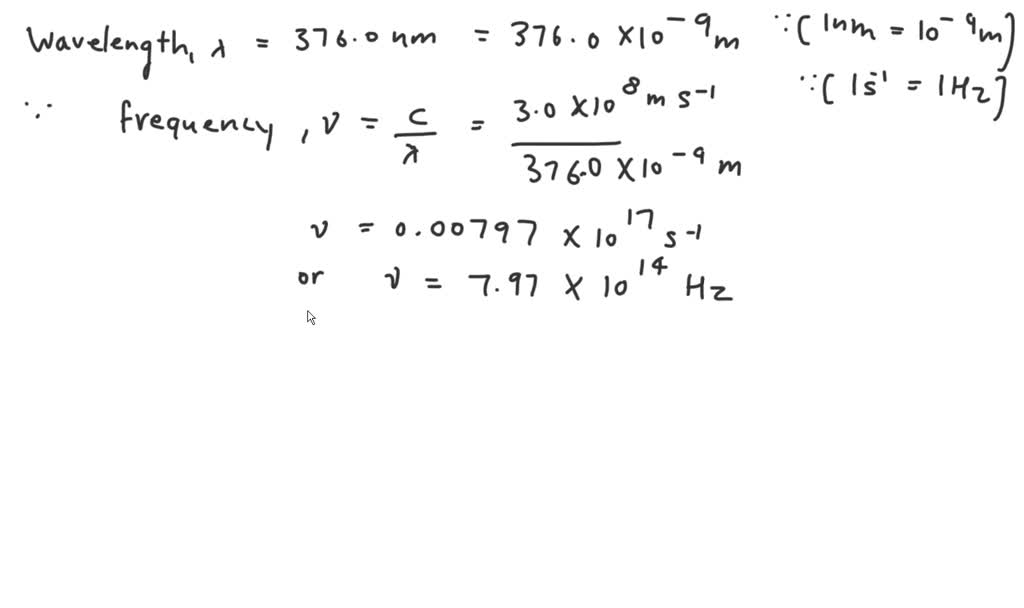 Wavelength, λ = 376.0 nm = 376.0 ×10⁻⁹ m ∵ ( 1nm = 10⁻⁹m )
∵ ( 1s⁻¹ = 1Hz )
∵ frequency, ν = c/λ = 3.0 ×10⁸ m s⁻¹ / 376.0 ×10⁻⁹ m
ν = 0.00797 × 10¹⁷ s⁻¹
or ν = 7.97 × 10¹⁴ Hz